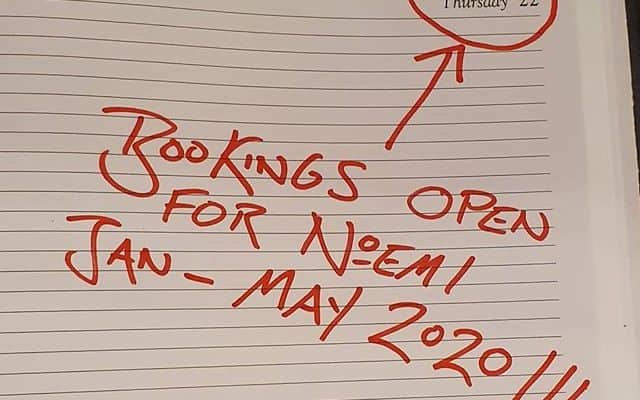 Thursday 22
BOOKINGS OPEN
FOR NOEMI
JAN - MAY 2020!!!